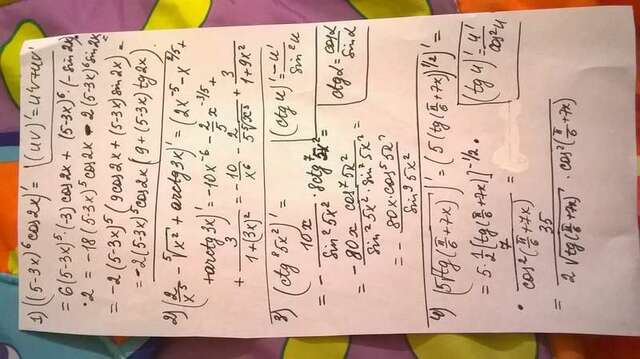 1) ((5-3x)⁶ cos2x)' = (uv)' = u'v+uv'
= 6(5-3x)⁵·(-3)cos2x + (5-3x)⁶·(-sin2x)·
·2 = -18(5-3x)⁵cos2x - 2(5-3x)⁶sin2x =
= -2(5-3x)⁵(9cos2x + (5-3x)sin2x) =
= -2(5-3x)⁵cos2x(9+(5-3x)tg2x)
2) (2/x⁵ - ⁵√x² + arctg3x)' = (2x⁻⁵ - x^2/5 +
+ arctg3x)' = -10x⁻⁶ - 2/5 x^-3/5 +
+ 3/(1+(3x)²) = -10/x⁶ - 2/(5 ⁵√x³) + 3/(1+9x²)
3) (ctg⁸5x²)' = (ctg u)' = -u'/sin²u
= - 10x/sin²5x² · 8ctg⁷5x² = ctgα = cosα/sinα
= -80x cos⁷5x²/(sin²5x²·sin⁷5x²) =
= - 80x·cos⁵5x²/sin⁹5x²
4) (5√tg(π/6+7x))' = (5(tg(π/6+7x))^1/2)' =
= 5·1/2[tg(π/6+7x)]^-1/2 · (tg u)' = u'/cos²u
· 7/cos²(π/6+7x) =
= 35/(2√tg(π/6+7x) · cos²(π/6+7x))